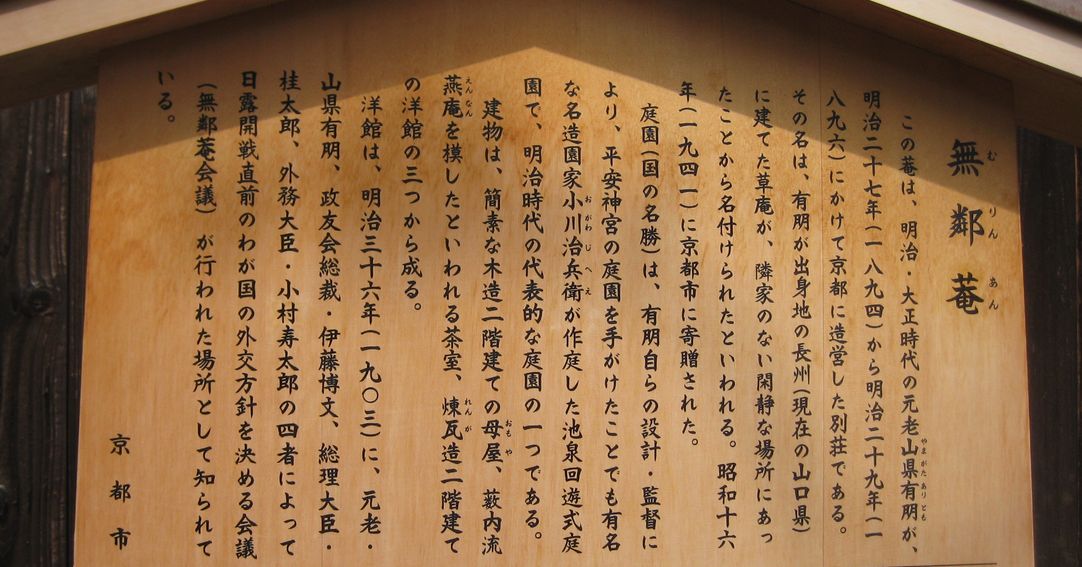 無鄰菴
むりんあん
この菴は、明治・大正時代の元老山県有朋が、
やまがたありとも
明治二十七年(一八九四)から明治二十九年(一
八九六)にかけて京都に造営した別荘である。
その名は、有朋が出身地の長州(現在の山口県)
に建てた草庵が、隣家のない閑静な場所にあっ
たことから名付けられたといわれる。昭和十六
年(一九四一)に京都市に寄贈された。
庭園(国の名勝)は、有朋自らの設計・監督に
より、平安神宮の庭園を手がけたことでも有名
な名造園家小川治兵衛が作庭した池泉回遊式庭
おがわじへえ
園で、明治時代の代表的な庭園の一つである。
建物は、簡素な木造二階建ての母屋、薮内流
おもや
燕庵を模したといわれる茶室、煉瓦造二階建て
えんなん
れんが
の洋館の三つから成る。
洋館は、明治三十六年(一九〇三)に、元老・
山県有朋、政友会総裁・伊藤博文、総理大臣・
桂太郎、外務大臣・小村寿太郎の四者によって
日露開戦直前のわが国の外交方針を決める会議
(無鄰菴会議)が行われた場所として知られて
いる。
京都市